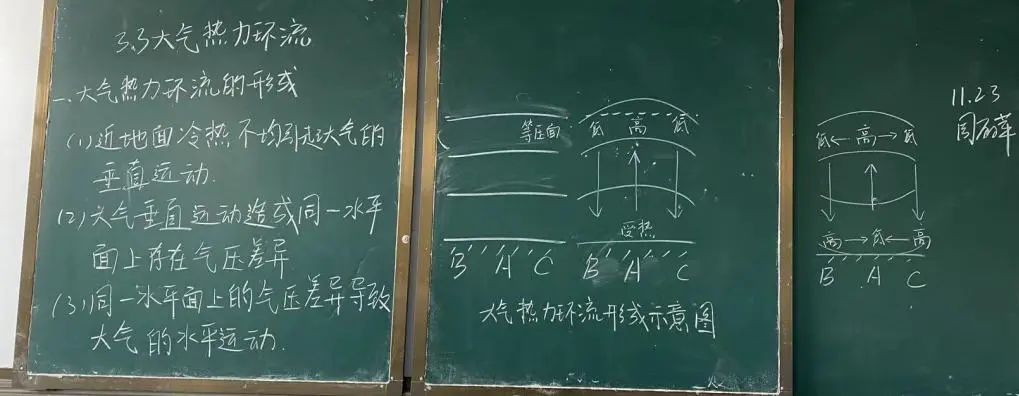 3.3大气热力环流
一、大气热力环流的形成
(1)近地面冷热不均引起大气的
垂直运动.
(2)大气垂直运动造成同一水平
面上存在气压差异
(3)同一水平面上的气压差异导致
大气的水平运动.
等压面
低 高 低
受热
B A C
B A C
大气热力环流形成示意图
11.23
低←高→低
高→低←高
B A C